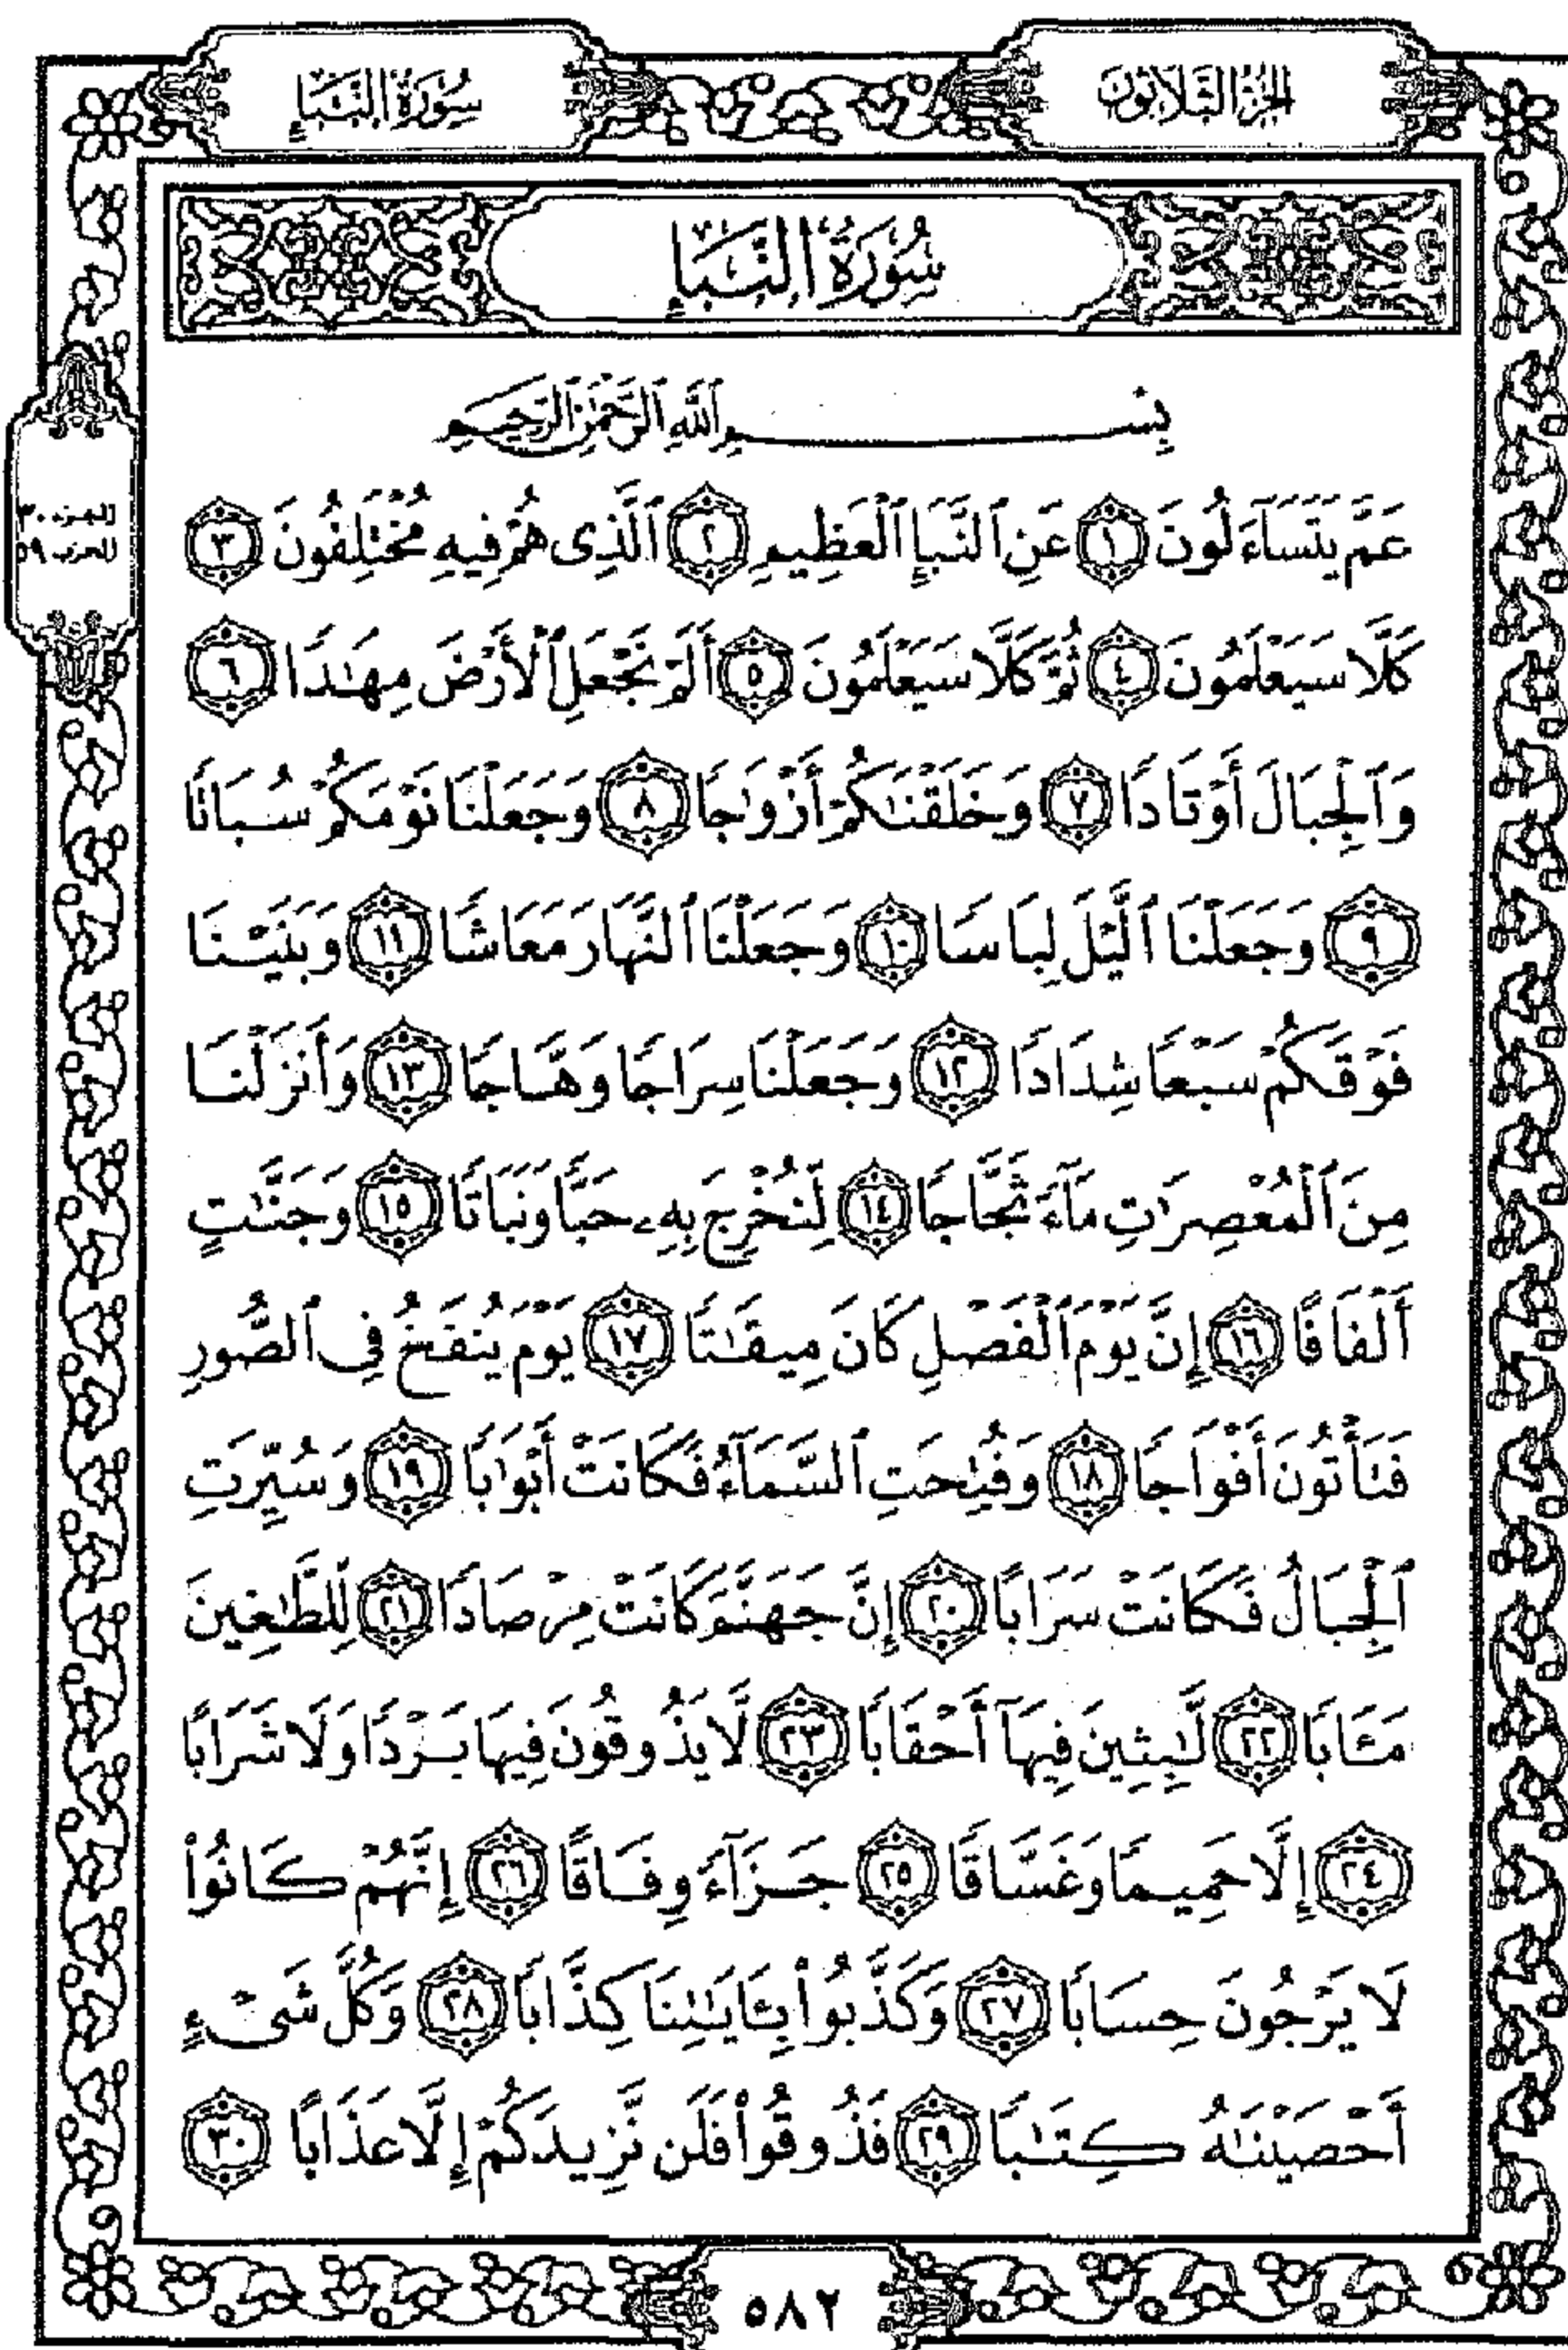 الجزء الثلاثون
سُورَةُ النَّبَإِ
سُورَةُ النَّبَإِ
بِسْمِ ٱللَّهِ ٱلرَّحْمَٰنِ ٱلرَّحِيمِ
عَمَّ يَتَسَآءَلُونَ ١ عَنِ ٱلنَّبَإِ ٱلْعَظِيمِ ٢ ٱلَّذِى هُمْ فِيهِ مُخْتَلِفُونَ ٣
كَلَّا سَيَعْلَمُونَ ٤ ثُمَّ كَلَّا سَيَعْلَمُونَ ٥ أَلَمْ نَجْعَلِ ٱلْأَرْضَ مِهَٰدًا ٦
وَٱلْجِبَالَ أَوْتَادًا ٧ وَخَلَقْنَٰكُمْ أَزْوَٰجًا ٨ وَجَعَلْنَا نَوْمَكُمْ سُبَاتًا
٩ وَجَعَلْنَا ٱلَّيْلَ لِبَاسًا ١٠ وَجَعَلْنَا ٱلنَّهَارَ مَعَاشًا ١١ وَبَنَيْنَا
فَوْقَكُمْ سَبْعًا شِدَادًا ١٢ وَجَعَلْنَا سِرَاجًا وَهَّاجًا ١٣ وَأَنزَلْنَا
مِنَ ٱلْمُعْصِرَٰتِ مَآءً ثَجَّاجًا ١٤ لِّنُخْرِجَ بِهِۦ حَبًّا وَنَبَاتًا ١٥ وَجَنَّٰتٍ
أَلْفَافًا ١٦ إِنَّ يَوْمَ ٱلْفَصْلِ كَانَ مِيقَٰتًا ١٧ يَوْمَ يُنفَخُ فِى ٱلصُّورِ
فَتَأْتُونَ أَفْوَاجًا ١٨ وَفُتِحَتِ ٱلسَّمَآءُ فَكَانَتْ أَبْوَٰبًا ١٩ وَسُيِّرَتِ
ٱلْجِبَالُ فَكَانَتْ سَرَابًا ٢٠ إِنَّ جَهَنَّمَ كَانَتْ مِرْصَادًا ٢١ لِّلطَّٰغِينَ
مَـَٔابًا ٢٢ لَّٰبِثِينَ فِيهَآ أَحْقَابًا ٢٣ لَّا يَذُوقُونَ فِيهَا بَرْدًا وَلَا شَرَابًا
٢٤ إِلَّا حَمِيمًا وَغَسَّاقًا ٢٥ جَزَآءً وِفَاقًا ٢٦ إِنَّهُمْ كَانُوا۟
لَا يَرْجُونَ حِسَابًا ٢٧ وَكَذَّبُوا۟ بِـَٔايَٰتِنَا كِذَّابًا ٢٨ وَكُلَّ شَىْءٍ
أَحْصَيْنَٰهُ كِتَٰبًا ٢٩ فَذُوقُوا۟ فَلَن نَّزِيدَكُمْ إِلَّا عَذَابًا ٣٠
الجزء ٣٠
الحزب ٥٩
٥٨٢